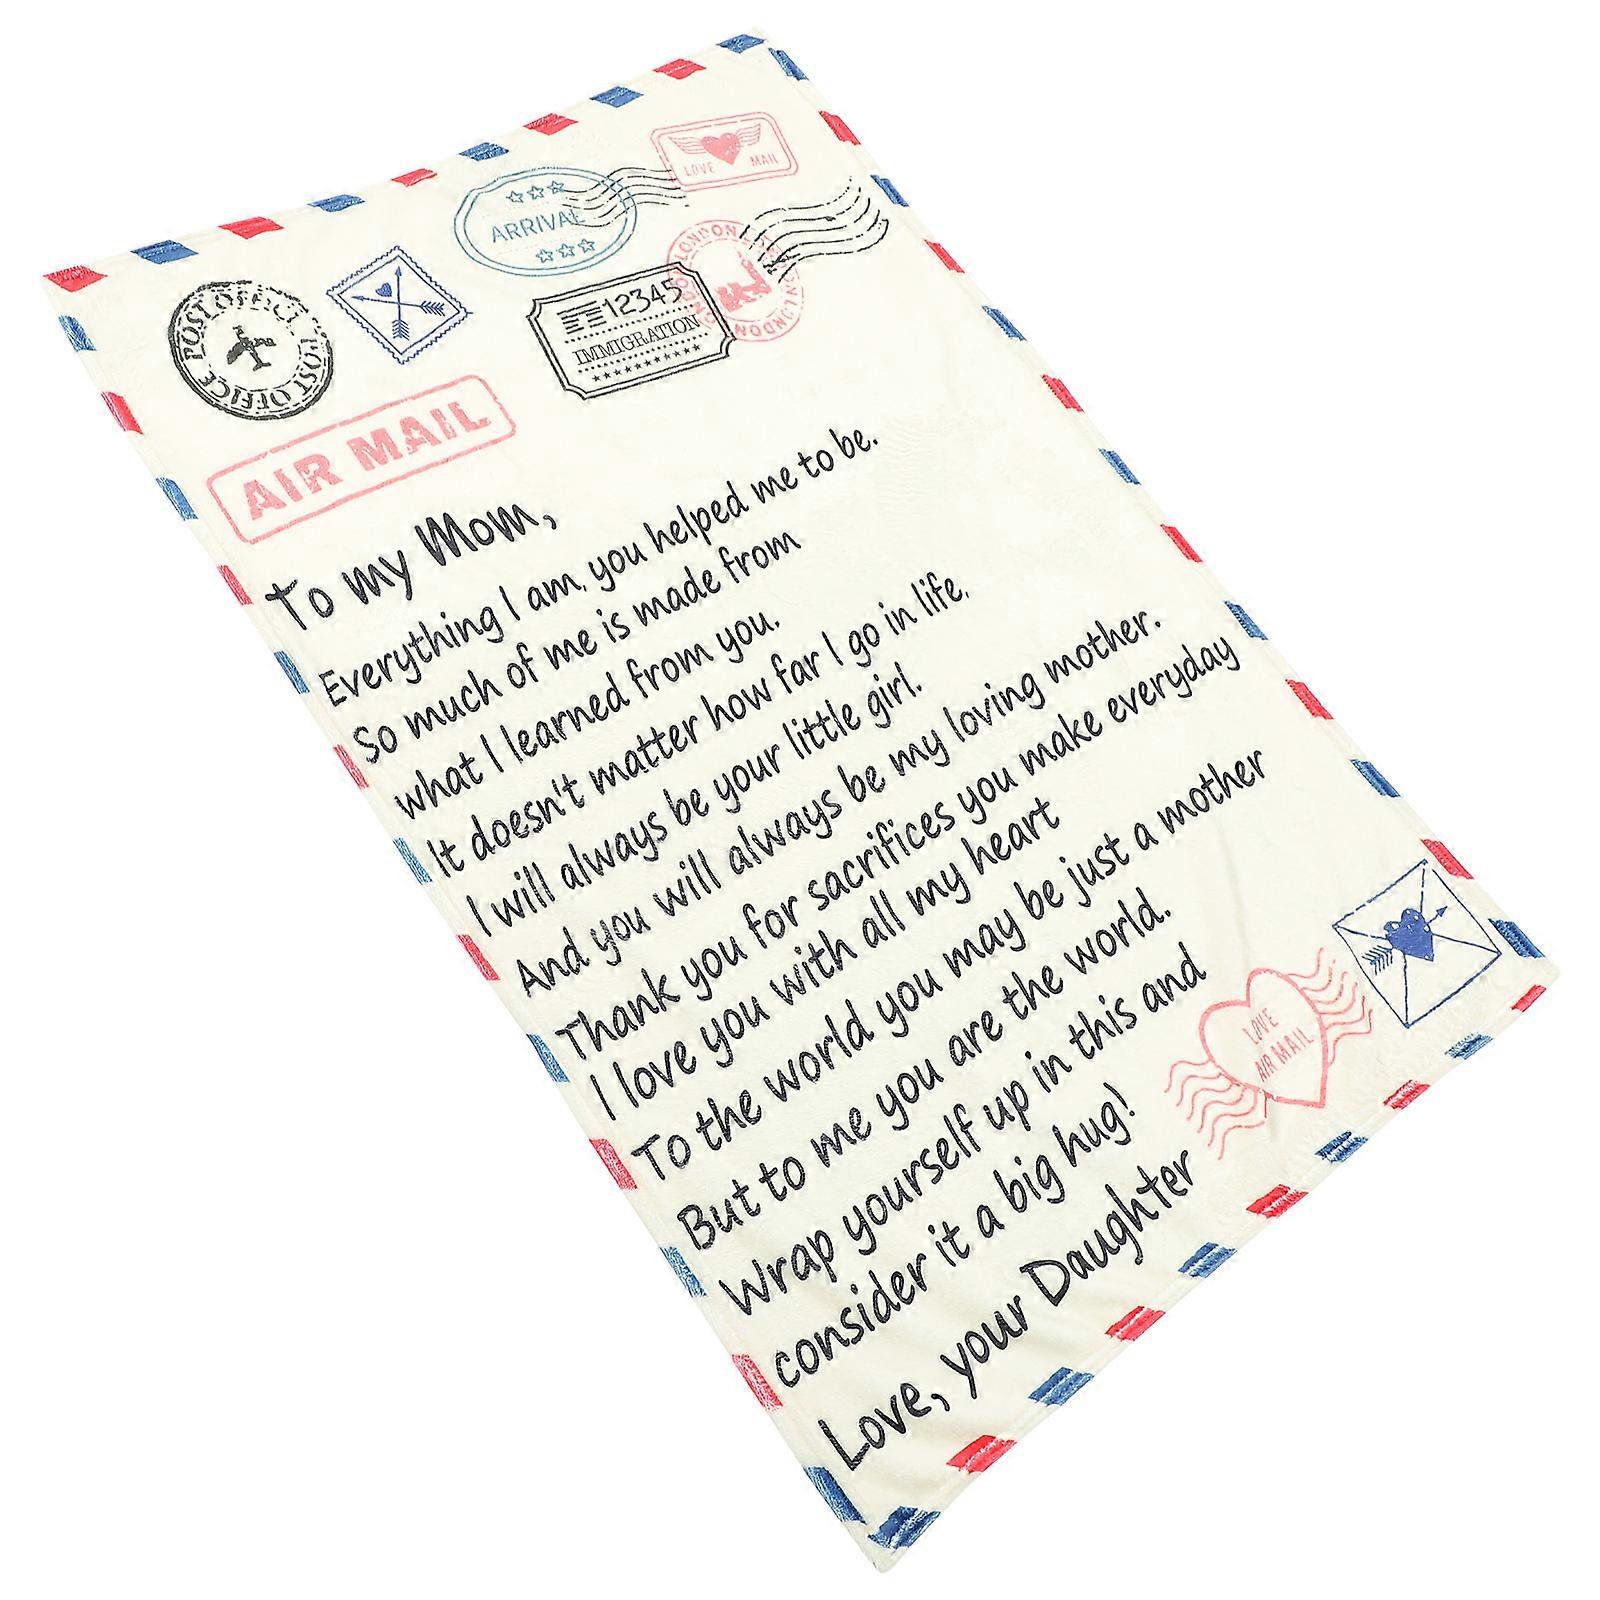 LOVE MAIL
ARRIVAL
LONDON LONDON LONDON LONDON
12345
IMMIGRATION
POST OFFICE POST OFFICE
AIR MAIL
To my Mom,
Everything I am, you helped me to be.
So much of me is made from
what I learned from you.
It doesn't matter how far I go in life,
I will always be your little girl.
And you will always be my loving mother.
Thank you for sacrifices you make everyday
I love you with all my heart
To the world you may be just a mother
But to me you are the world.
Wrap yourself up in this and
consider it a big hug!
Love, your Daughter
LOVE
AIR MAIL